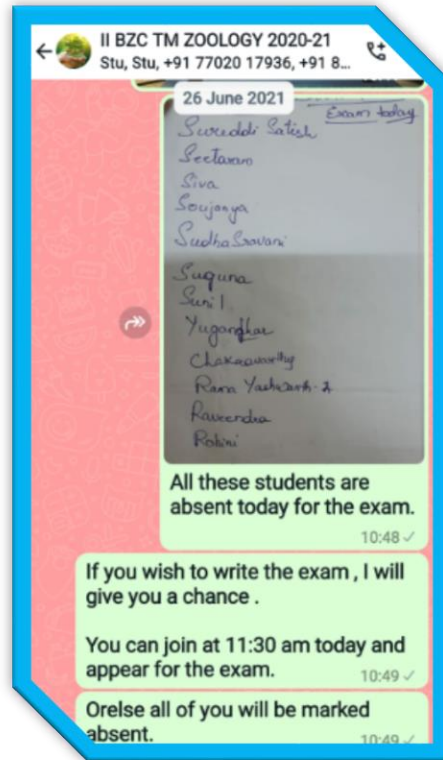 II BZC TM ZOOLOGY 2020-21
Stu, Stu, +91 77020 17936, +91 8...
26 June 2021
Exam today
Sureddi Satish
Seetaram
Siva
Soujanya
Sudha Sravani
Suguna
Sunil
Yugandhar
Chakravarthy
Rama Yashwanth-
Raveendra
Rohini
All these students are
absent today for the exam.
10:48
If you wish to write the exam , I will
give you a chance .
You can join at 11:30 am today and
appear for the exam.
10:49
Orelse all of you will be marked
absent.
10:49